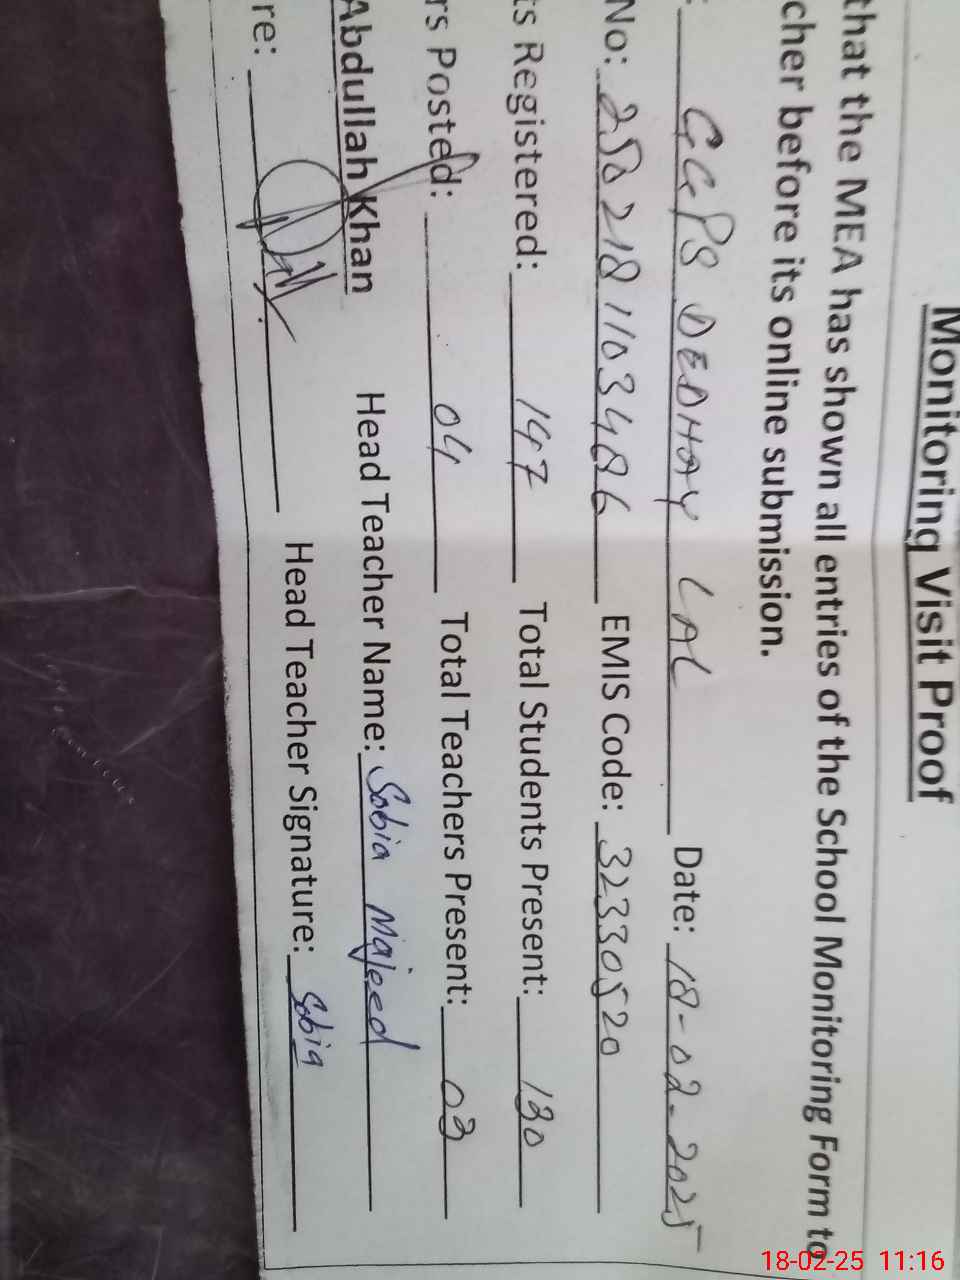 Monitoring Visit Proof
that the MEA has shown all entries of the School Monitoring Form to
cher before its online submission.
: GGPS DEDHAY LAL Date: 18-02-2025
No: 2502181103486 EMIS Code: 32330520
ts Registered: 147 Total Students Present: 130
rs Posted: 04 Total Teachers Present: 03
Abdullah Khan Head Teacher Name: Sobia Majeed
re: Head Teacher Signature: Sobia
18-02-25 11:16